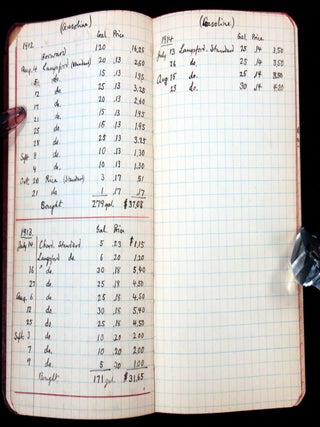 (Gasoline)
1912 Gal. Price
Forward 120 16.25
Aug. 4 Langford (Standard) 20 .13 2.60
8 do. 15 .13 1.95
12 do. 25 .13 3.25
17 do. 20 .13 2.60
21 do. 15 .13 1.95
25 do. 15 .13 1.95
28 do. 25 .13 3.25
Sept. 8 do. 10 .13 1.30
9 do. 10 .13 1.30
Oct. 20 Rice (Standard) 3 .17 .51
21 do. 1 .17 .17
Bought 279 gal. $37.08
1913 Gal. Price
July 14 Standard 5 .23 $1.15
Langford do. 6 .20 1.20
16 do. 30 .18 5.40
27 do. 25 .18 4.50
Aug. 6 do. 25 .18 4.50
12 do. 30 .18 5.40
25 do. 25 .18 4.50
Sept. 3 do. 10 .20 2.00
7 do. 10 .20 2.00
9 do. 5 .20 1.00
Bought 171 gal. $31.65
1914 (Gasoline)
Gal. Price
July 13 Langford Standard 25 .14 3.50
26 do. 25 .14 3.50
Aug 15 do. 25 .14 3.50
23 do. 30 .14 4.20